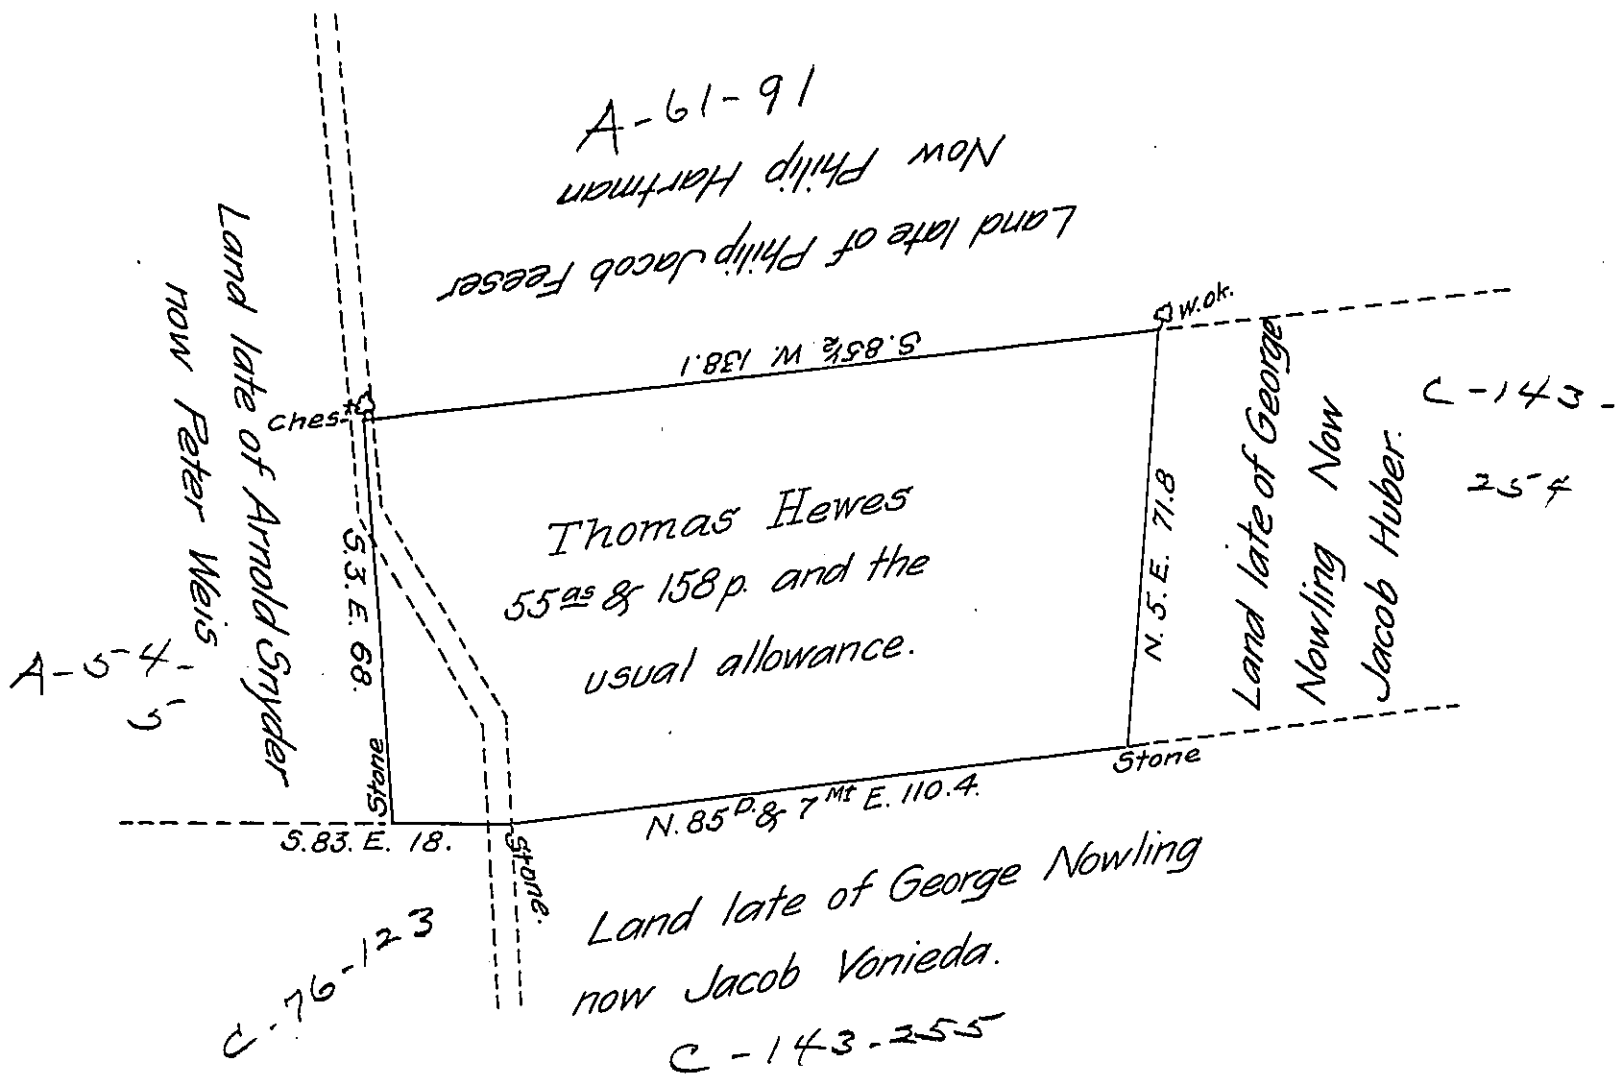 A-61-91
Land late of Philip Jacob Feeser
Now Philip Hartman
S. 85½ W. 138.1
W. ok.
Ches.t
Land late of Arnold Snyder
now Peter Weis
A-54-
5
S. 3. E. 68.
Thomas Hewes
55as & 158 p. and the
usual allowance.
N. 5. E. 71.8
Land late of George
Nowling Now
Jacob Huber.
C-143-
254
Stone
Stone
S. 83. E. 18.
Stone.
N. 85D. & 7Mt E. 110.4.
Land late of George Nowling
now Jacob Vonieda.
C-143-255
C-76-123